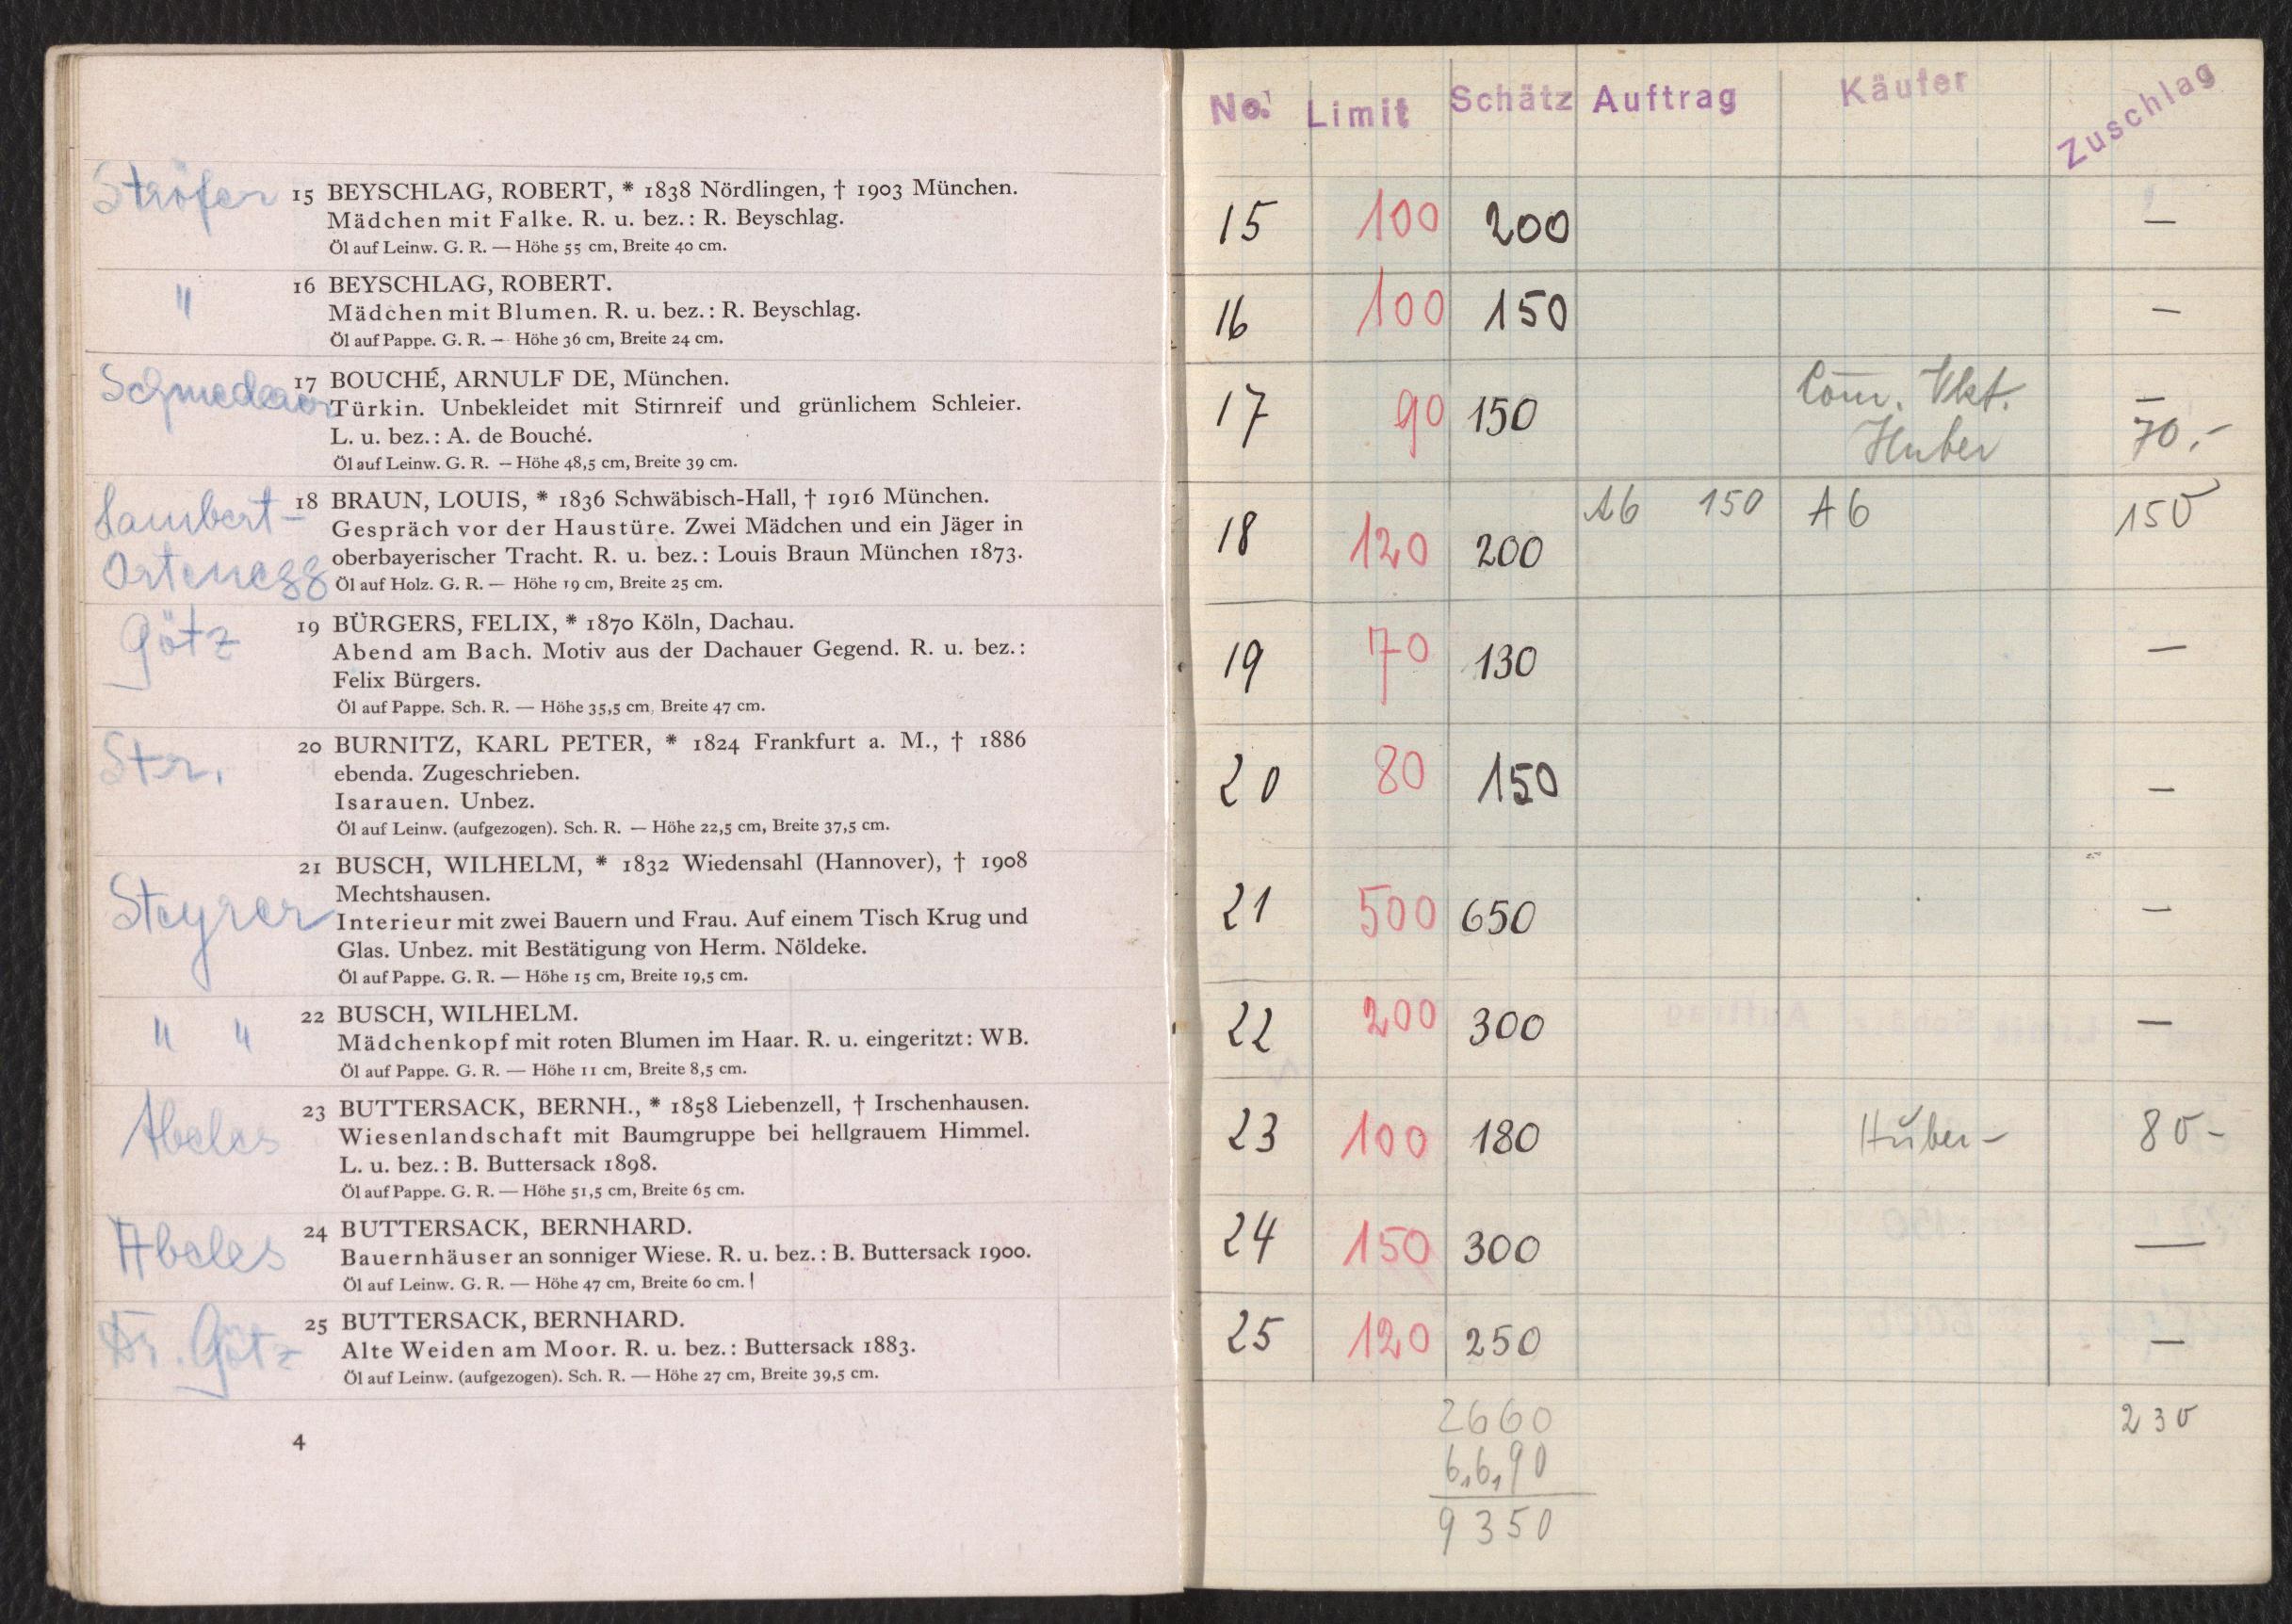 Ströfer
15 BEYSCHLAG, ROBERT, * 1838 Nördlingen, † 1903 München.
Mädchen mit Falke. R. u. bez.: R. Beyschlag.
Öl auf Leinw. G. R. — Höhe 55 cm, Breite 40 cm.
"
16 BEYSCHLAG, ROBERT.
Mädchen mit Blumen. R. u. bez.: R. Beyschlag.
Öl auf Pappe. G. R. — Höhe 36 cm, Breite 24 cm.
17 BOUCHÉ, ARNULF DE, München.
Türkin. Unbekleidet mit Stirnreif und grünlichem Schleier.
L. u. bez.: A. de Bouché.
Öl auf Leinw. G. R. — Höhe 48,5 cm, Breite 39 cm.
Lambert-
Ortenegg
18 BRAUN, LOUIS, * 1836 Schwäbisch-Hall, † 1916 München.
Gespräch vor der Haustüre. Zwei Mädchen und ein Jäger in
oberbayerischer Tracht. R. u. bez.: Louis Braun München 1873.
Öl auf Holz. G. R. — Höhe 19 cm, Breite 25 cm.
Götz
19 BÜRGERS, FELIX, * 1870 Köln, Dachau.
Abend am Bach. Motiv aus der Dachauer Gegend. R. u. bez.:
Felix Bürgers.
Öl auf Pappe. Sch. R. — Höhe 35,5 cm, Breite 47 cm.
Str.
20 BURNITZ, KARL PETER, * 1824 Frankfurt a. M., † 1886
ebenda. Zugeschrieben.
Isarauen. Unbez.
Öl auf Leinw. (aufgezogen). Sch. R. — Höhe 22,5 cm, Breite 37,5 cm.
Steyrer
21 BUSCH, WILHELM, * 1832 Wiedensahl (Hannover), † 1908
Mechtshausen.
Interieur mit zwei Bauern und Frau. Auf einem Tisch Krug und
Glas. Unbez. mit Bestätigung von Herm. Nöldeke.
Öl auf Pappe. G. R. — Höhe 15 cm, Breite 19,5 cm.
" "
22 BUSCH, WILHELM.
Mädchenkopf mit roten Blumen im Haar. R. u. eingeritzt: WB.
Öl auf Pappe. G. R. — Höhe 11 cm, Breite 8,5 cm.
Abeles
23 BUTTERSACK, BERNH., * 1858 Liebenzell, † Irschenhausen.
Wiesenlandschaft mit Baumgruppe bei hellgrauem Himmel.
L. u. bez.: B. Buttersack 1898.
Öl auf Pappe. G. R. — Höhe 51,5 cm, Breite 65 cm.
Abeles
24 BUTTERSACK, BERNHARD.
Bauernhäuser an sonniger Wiese. R. u. bez.: B. Buttersack 1900.
Öl auf Leinw. G. R. — Höhe 47 cm, Breite 60 cm.
Dr. Götz
25 BUTTERSACK, BERNHARD.
Alte Weiden am Moor. R. u. bez.: Buttersack 1883.
Öl auf Leinw. (aufgezogen). Sch. R. — Höhe 27 cm, Breite 39,5 cm.
4
No. Limit Schätz Auftrag Käufer Zuschlag
15 100 200 —
16 100 150 —
17 90 150 Com. Vkt. —
Huber 70.-
18 120 200 A6 150 A6 150
19 70 130 —
20 80 150 —
21 500 650 —
22 200 300 —
23 100 180 Huber - 80-
24 150 300 —
25 120 250 —
2660 230
6,6,90
9350